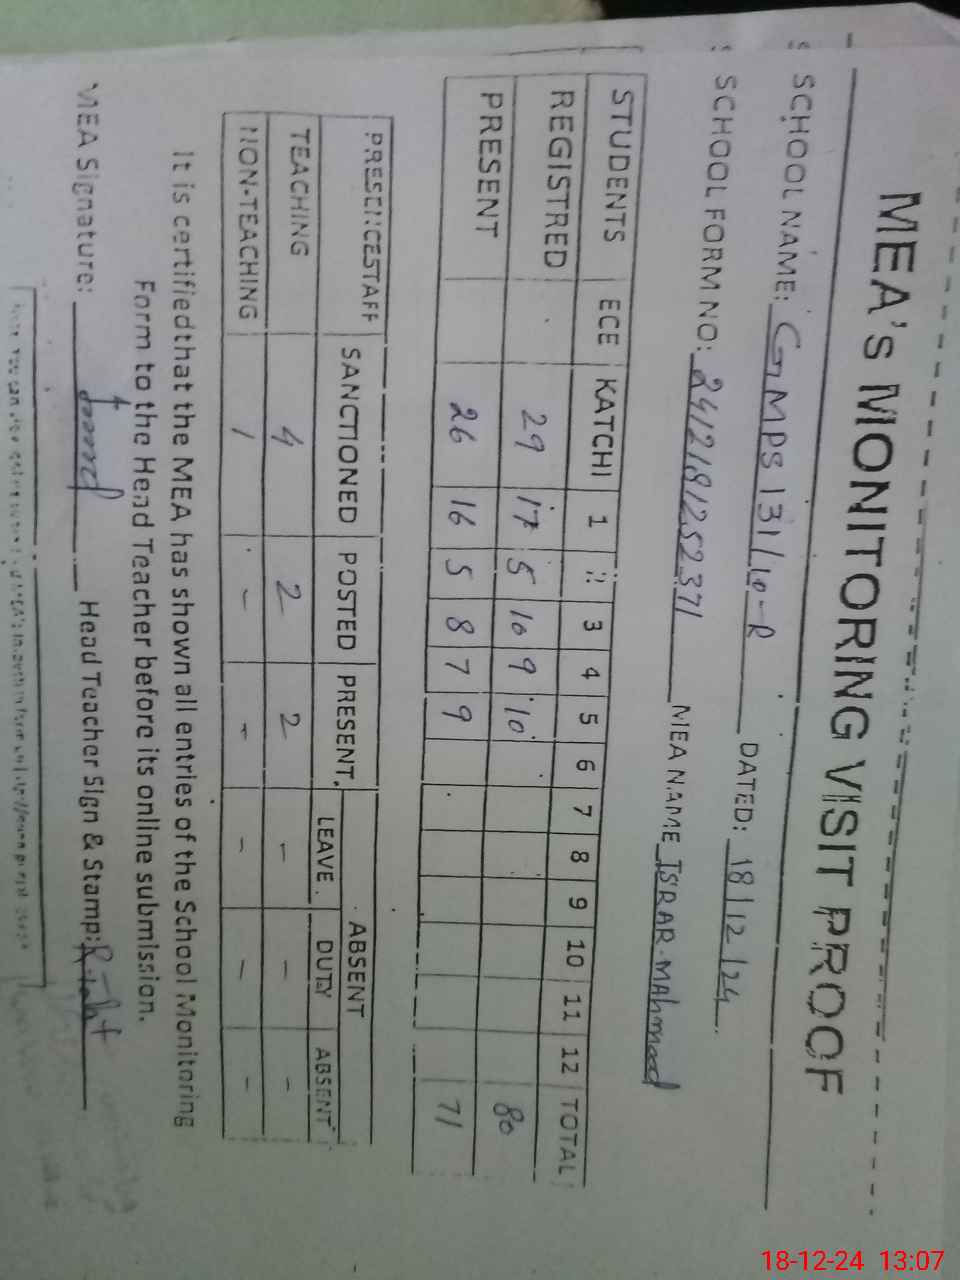 MEA's MONITORING VISIT PROOF
SCHOOL NAME: GMPS 131/10-R DATED: 18/12/24
SCHOOL FORM NO: 2412181252371 MEA NAME ISRAR. MAhmood
STUDENTS ECE KATCHI 1 2 3 4 5 6 7 8 9 10 11 12 TOTAL
REGISTRED 29 17 5 10 9 10 80
PRESENT 26 16 5 8 7 9 71
PRESENCESTAFF SANCTIONED POSTED PRESENT ABSENT
LEAVE DUTY ABSENT
TEACHING 4 2 2 - - -
NON-TEACHING 1 - - - - -
It is certified that the MEA has shown all entries of the School Monitoring
Form to the Head Teacher before its online submission.
MEA Signature: Head Teacher Sign & Stamp:
18-12-24 13:07